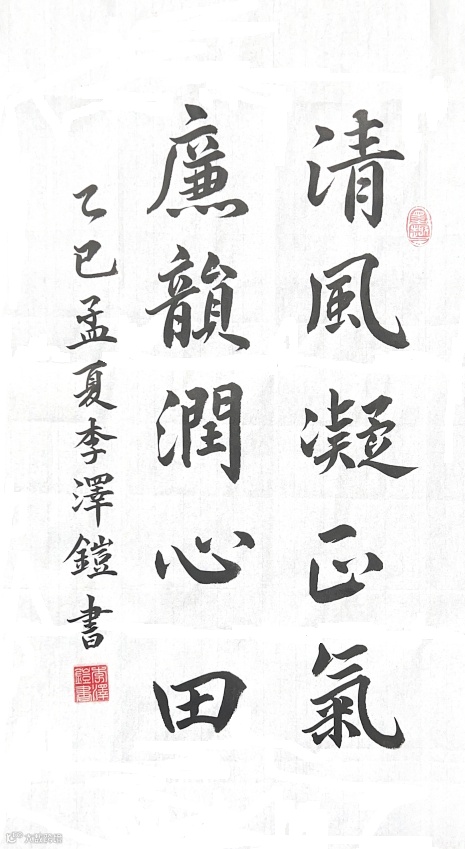 清風凝正氣
廉韻潤心田
乙巳孟夏李澤鎧書
李澤鎧書